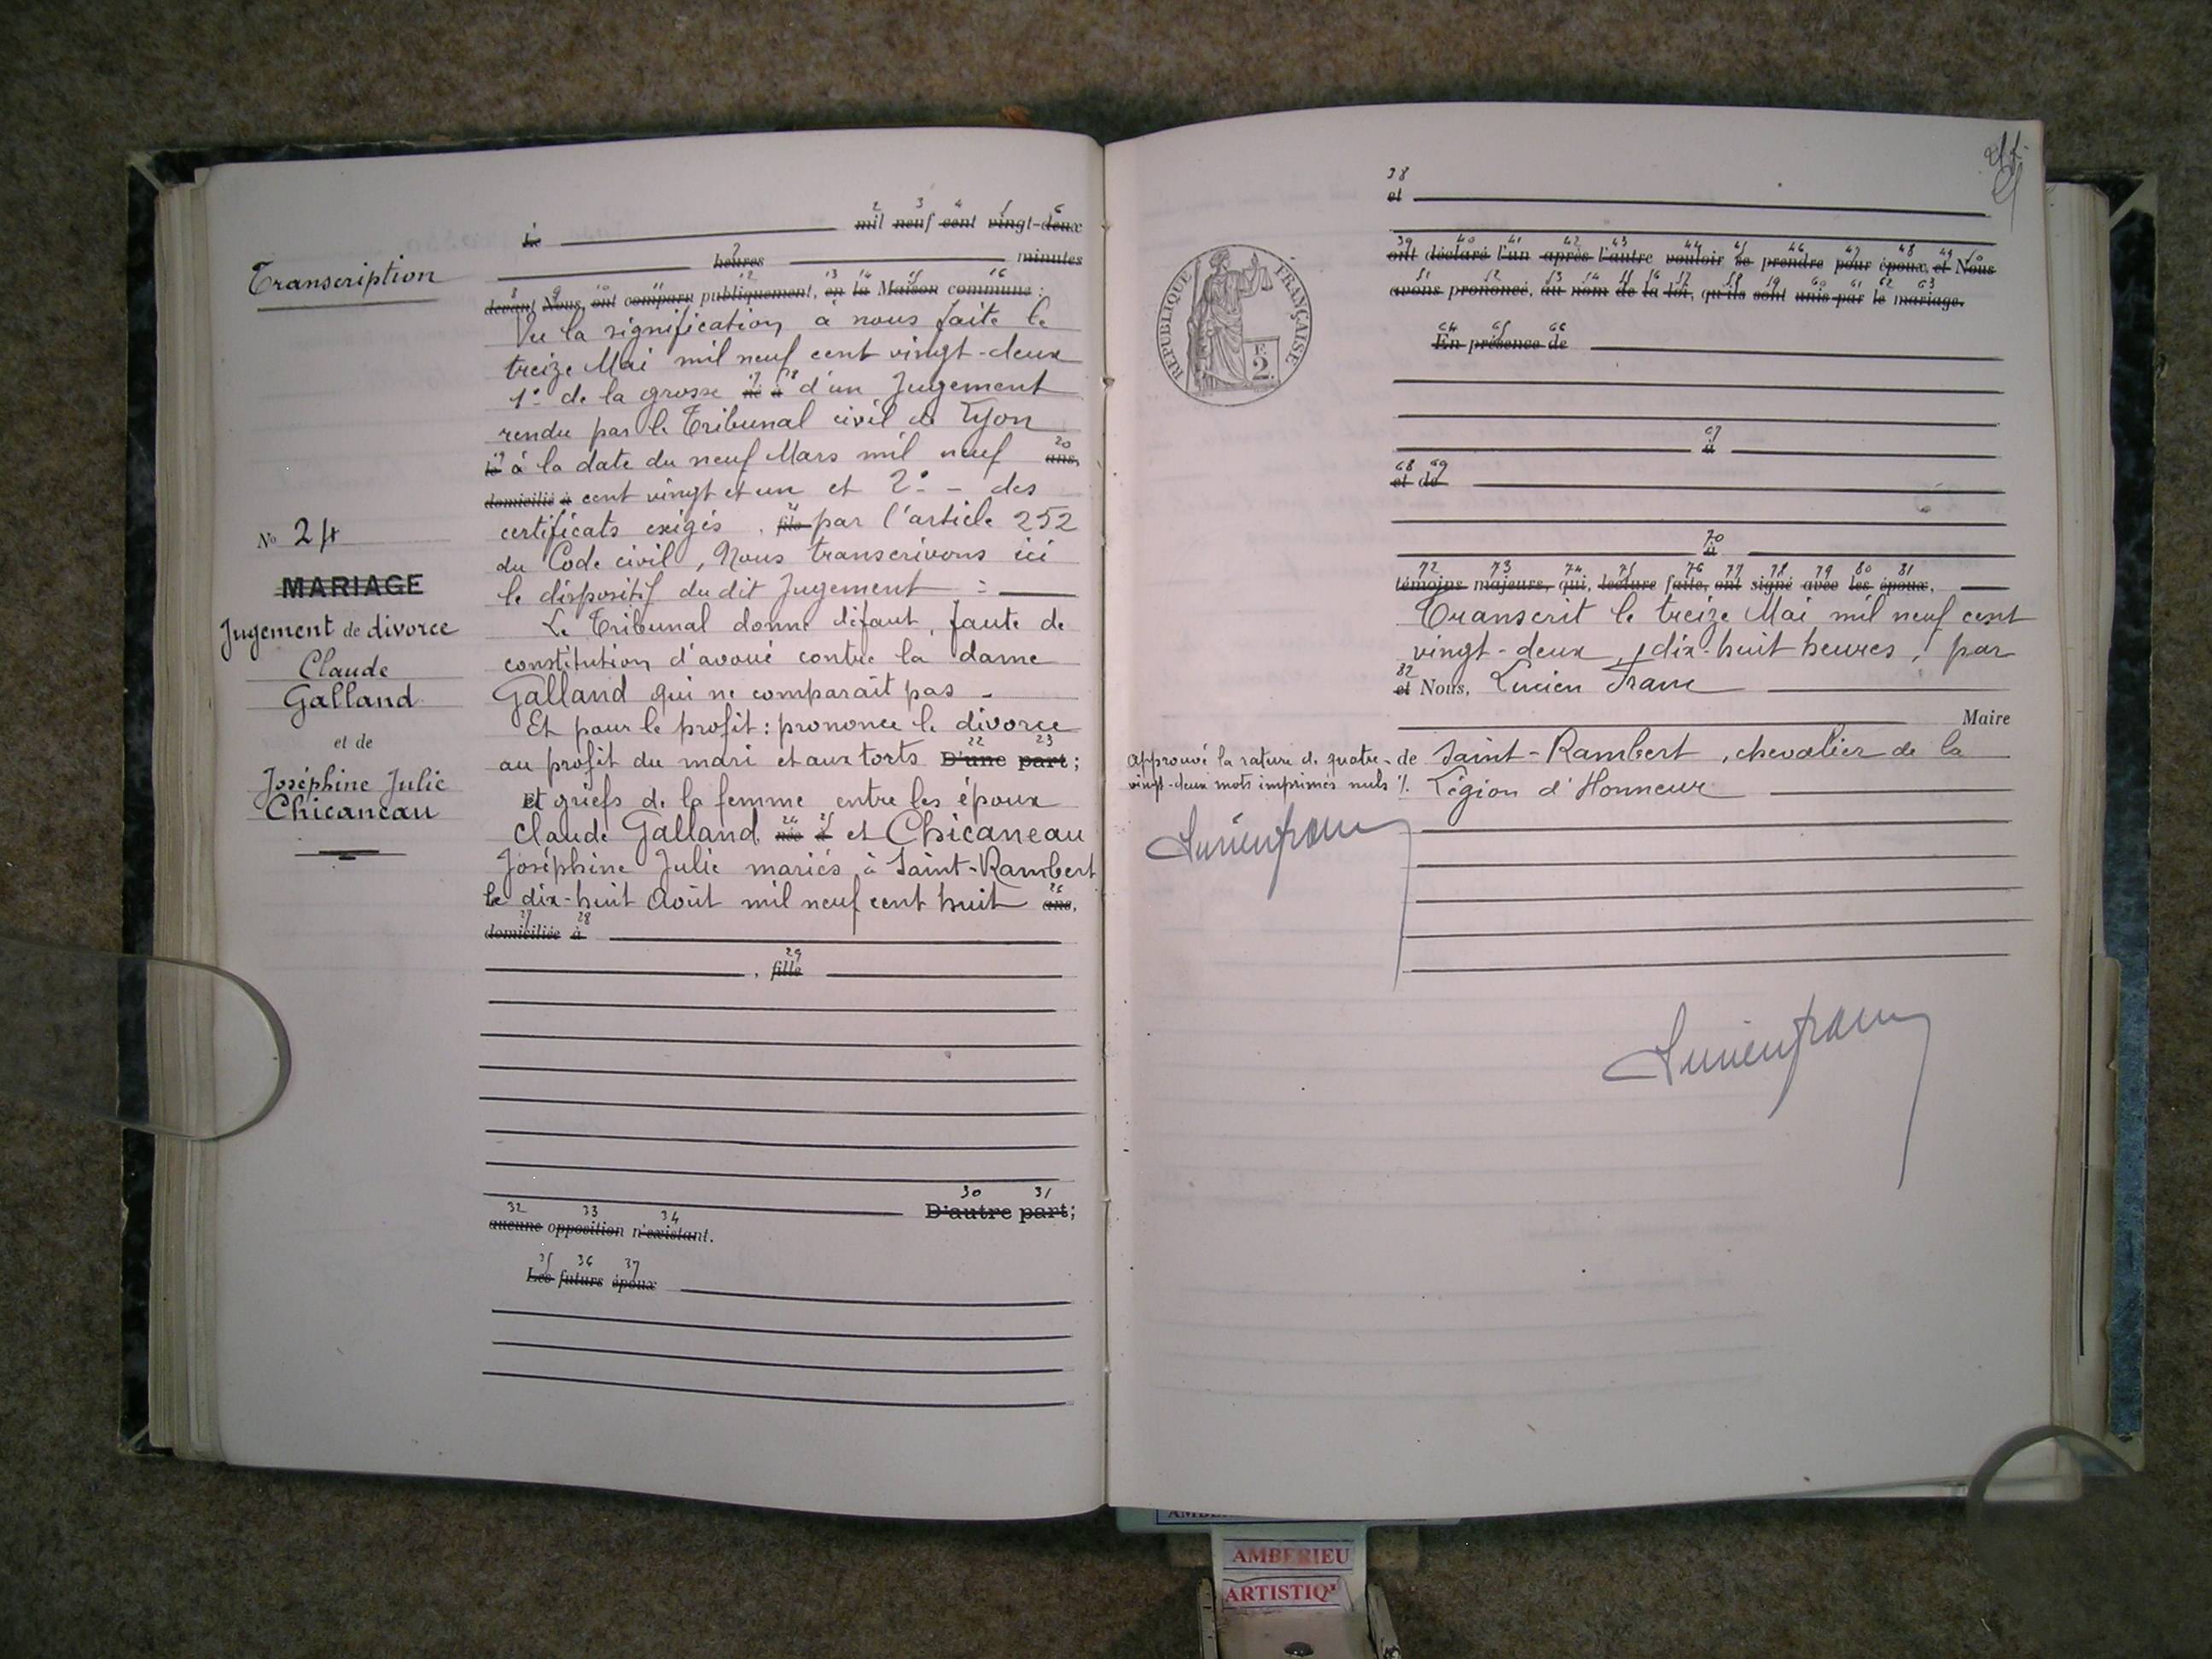 Transcription
N° 24
MARIAGE
Jugement de divorce
Claude
Galland
et de
Joséphine Julie
Chicaneau
Le mil neuf cent vingt-deux
heures minutes
devant Nous, ont comparu publiquement, en la Maison commune :
Vu la signification à nous faite le
treize Mai mil neuf cent vingt-deux
1° de la grosse né à d'un Jugement
rendu par le Tribunal civil de Lyon
le à la date du neuf Mars mil neuf ans,
domicilié à cent vingt et un et 2° - des
certificats exigés , fils par l'article 252
du Code civil, Nous transcrivons ici
le dispositif du dit Jugement :
Le Tribunal donne défaut, faute de
constitution d'avoué contre la dame
Galland qui ne comparait pas -
Et pour le profit : prononce le divorce
au profit du mari et aux torts D'une part ;
Et griefs de la femme entre les époux
Claude Galland née à et Chicaneau
Joséphine Julie mariés à Saint-Rambert
le dix-huit Août mil neuf cent huit ans,
domiciliée à
, fille
D'autre part ;
aucune opposition n'existant.
Les futurs époux
et
ont déclaré l'un après l'autre vouloir se prendre pour époux, et Nous
avons prononcé, au nom de la loi, qu'ils sont unis par le mariage.
En présence de
à
et de
à
témoins majeurs, qui, lecture faite, ont signé avec les époux,
Transcrit le treize Mai mil neuf cent
vingt-deux, dix-huit heures, par
et Nous, Lucien Franc
Maire
de Saint-Rambert, chevalier de la
Légion d'Honneur
Approuvé la rature de quatre-
vingt-deux mots imprimés nuls ./.
Lucien Franc
Lucien Franc
RÉPUBLIQUE FRANÇAISE
F.
2.
AMBERIEU
ARTISTIQ